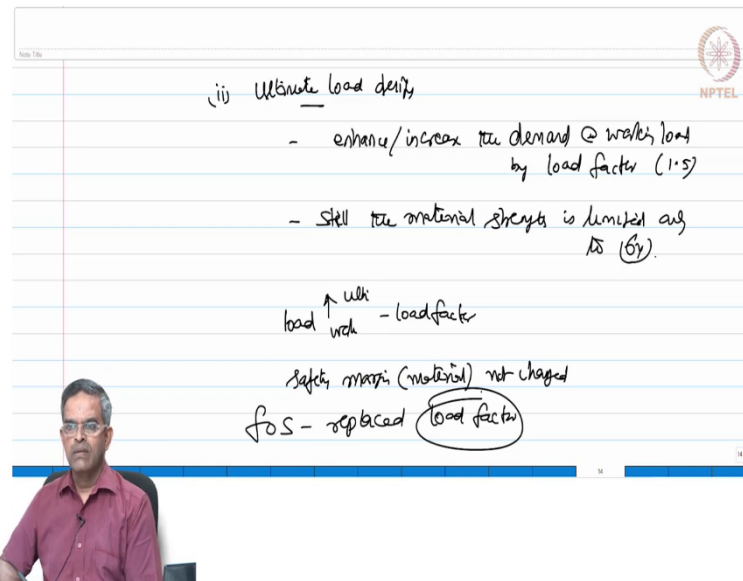 Note Title
NPTEL
(ii) Ultimate load design
- enhance/increase the demand @ working load
by load factor (1.5)
- still the material strength is limited only
to (σy).
load ↑ ulti
work - load factor
safety margin (material) not changed
FOS - replaced load factor
14
14